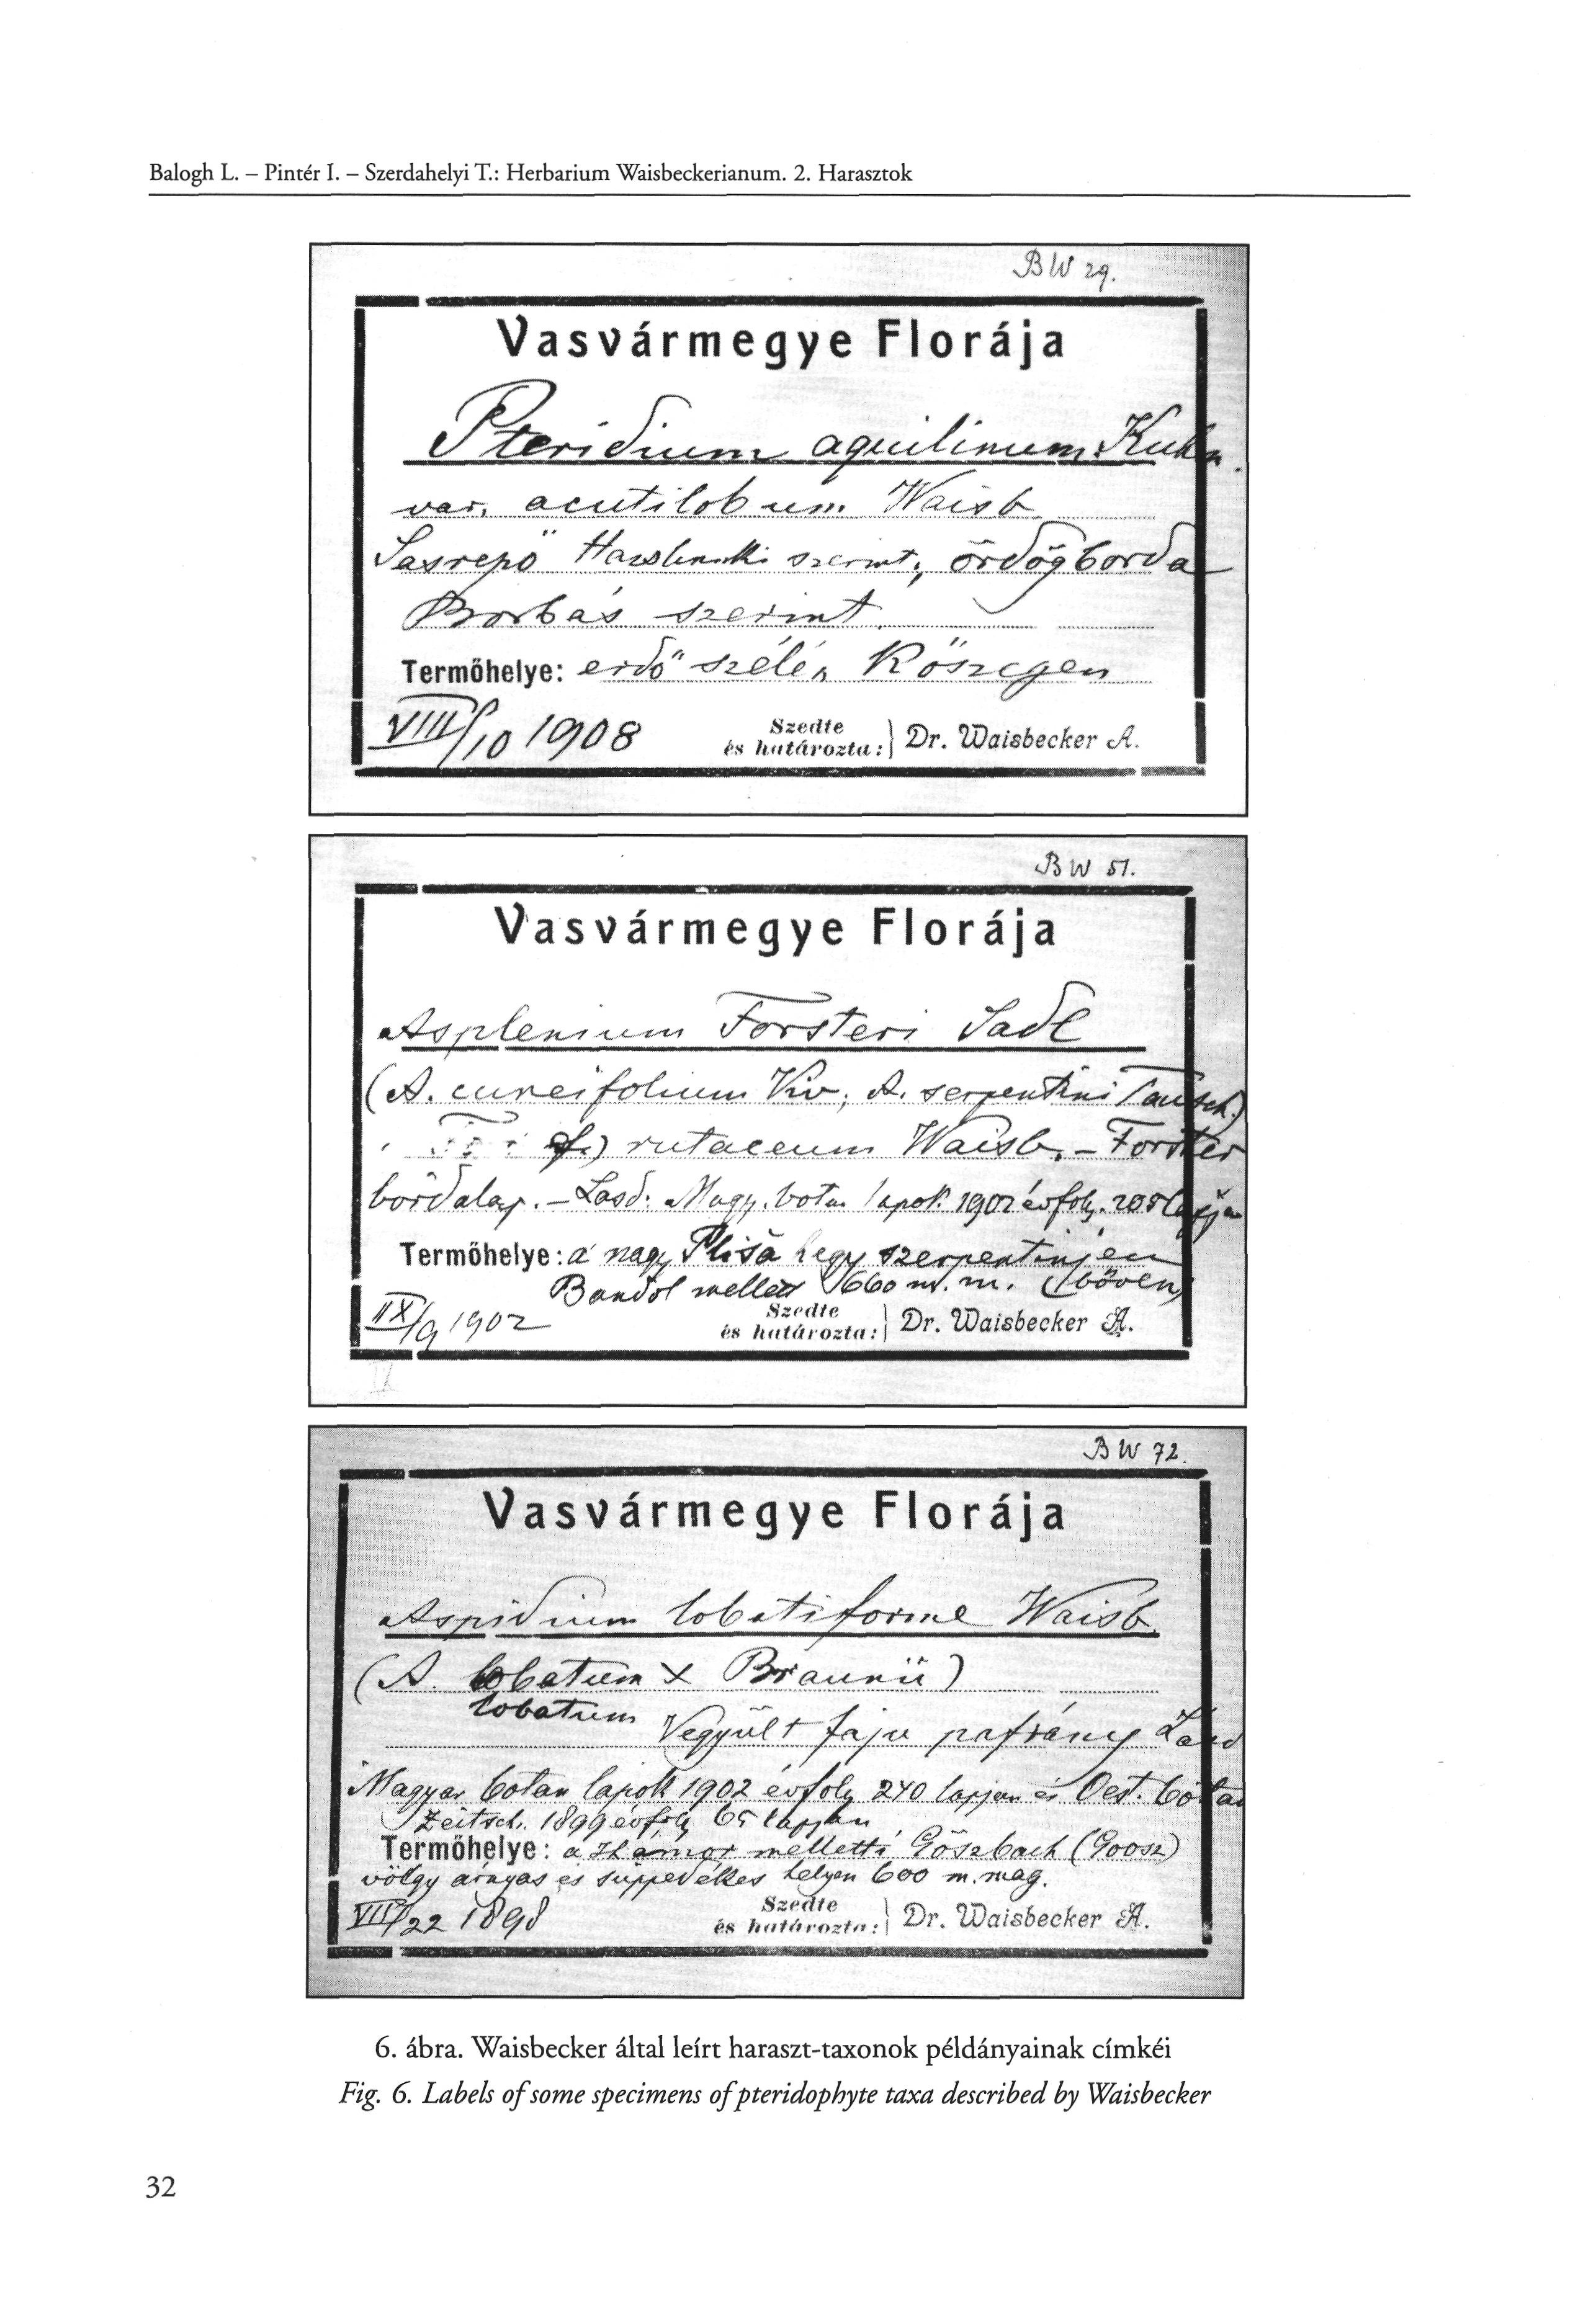 Balogh L. – Pintér I. – Szerdahelyi T.: Herbarium Waisbeckerianum. 2. Harasztok
BW 29.
Vasvármegye Florája
Pteridium aquilinum Kuhn.
var. acutilobum Waisb.
Sasrepő Hazslinszki szerint, ördögborda
Borbás szerint.
Termőhelye: erdő szélén Kőszegen
VIII/10 1908
Szedte
és határozta: Dr. Waisbecker A.
BW 51.
Vasvármegye Florája
Asplenium Forsteri Sadl
(A. cuneifolium Viv, A. serpentini Tausch.)
f.) rutaceum Waisb. – Forster
bordalap. – Lásd: Magy. botan lapok 1902 évfoly. 205 lapján
Termőhelye: a nagy Plisa hegy szerpentinjen
Bandol mellett 660 m. m. (bőven)
IX/9 1902
Szedte
és határozta: Dr. Waisbecker A.
BW 72.
Vasvármegye Florája
Aspidium lobatiforme Waisb.
(A. lobatum X Braunii)
lobatum
Vegyült faju pafrány Lásd
Magyar botan lapok 1902 évfoly 240 lapjan és Oest. botan
Zeitsch. 1899 évfoly 65 lapján
Termőhelye: a Hámor melletti Göszbach (Goosz)
völgy árnyas és süppedékes helyen 600 m. mag.
VIII/22 1898
Szedte
és határozta: Dr. Waisbecker A.
6. ábra. Waisbecker által leírt haraszt-taxonok példányainak címkéi
Fig. 6. Labels of some specimens of pteridophyte taxa described by Waisbecker
32